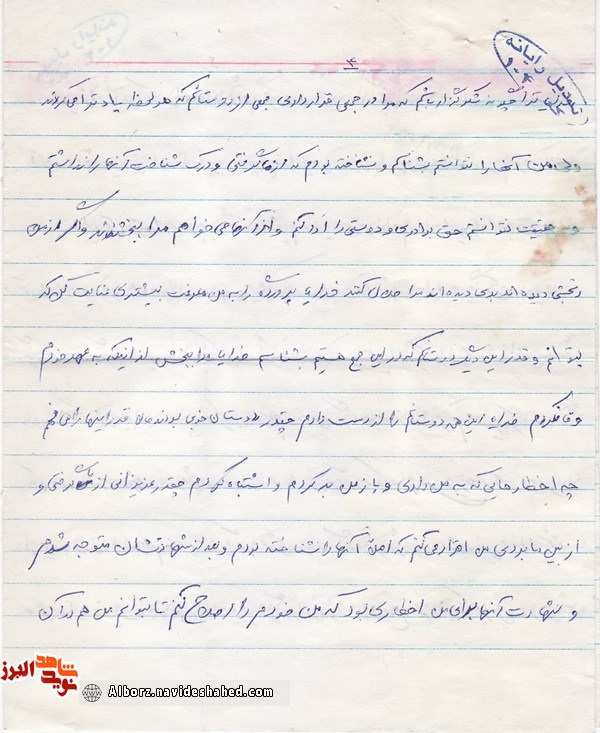 ۴
تبدیل رایانه
ترا چگونه شکرگزار باشم که مرا در جمعی قرار دادی جمعی از دوستانم که هر لحظه یاد ترا می‌کردند
ولی من آنها را نتوانستم بشناسم و نشناخته بودم که از ما گرفتی و درک شناخت آنها را نداشتم
و به حقیقت نتوانستم حق برادری و دوستی را ادا کنم و از آنها می‌خواهم مرا ببخشند و اگر از من
رنجشی دیده‌اند بدی دیده‌اند مرا حلال کنند خدایا پروردگارا به من معرفت بیشتری عنایت کن که
بتوانم و قدر این دیگر دوستانم که در این جمع هستیم بشناسم خدایا مرا ببخش از اینکه به عهد خودم
وفا نکردم خدایا این همه دوستانم را از دست دادم چقدر دوستان خوبی بودند ولی قدر اینها را نمی
چه اخطارهایی که به من دادی و باز من بد کردم و اشتباه کردم چقدر عزیزانی از ما گرفتی و
از بین ما بردی من اقرار می‌کنم که اصلاً آنها را نشناخته بودم و بعد از شهادتشان متوجه شدم
و شهادت آنها برای من اخطاری بود که من خودم را اصلاح کنم تا بتوانم من هم در آن
نوید شاهد البرز
Alborz.navideshahed.com